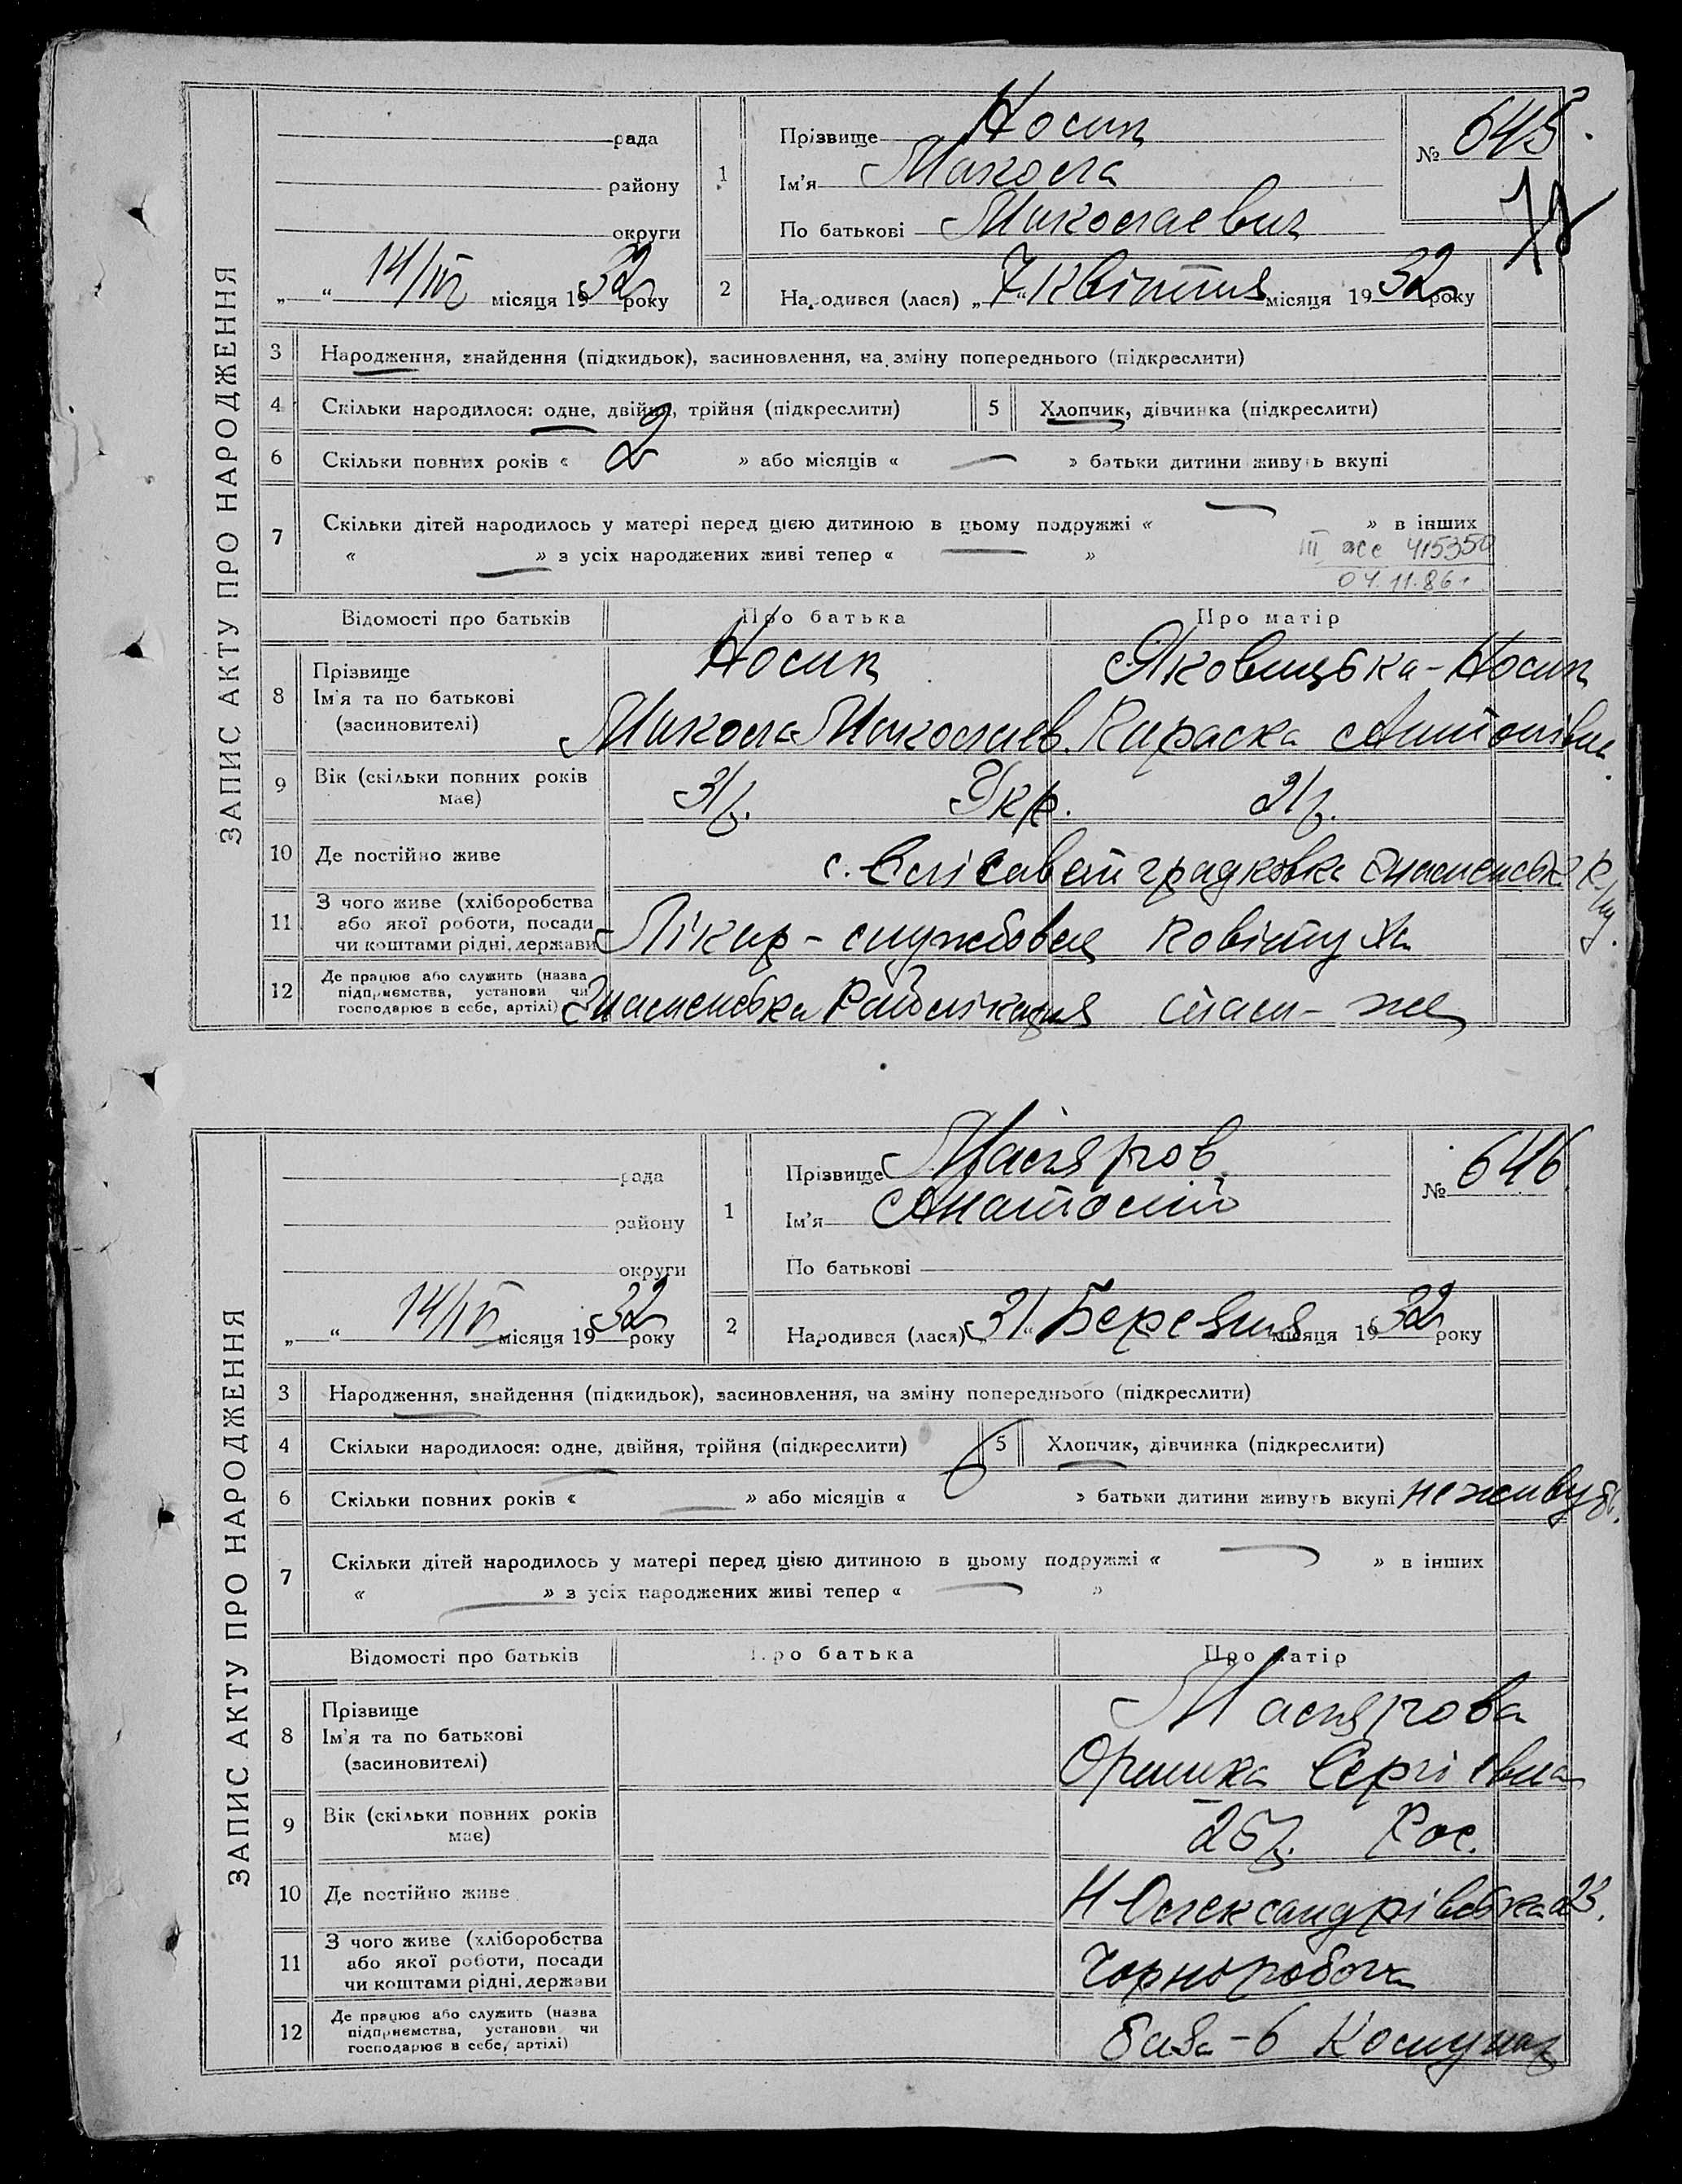 ЗАПИС АКТУ ПРО НАРОДЖЕННЯ
рада
району
округи
„ “ 14/IV місяця 1932 року
1
Прізвище Носик
Ім'я Микола
По батькові Миколаевич
№ 645.
2
Народився (лася) „7“ Квітня місяця 1932 року
3 Народження, знайдення (підкидьок), засиновлення, на зміну попереднього (підкреслити)
4 Скільки народилося: одне, двійня, трійня (підкреслити) 5 Хлопчик, дівчинка (підкреслити)
6 Скільки повних років « 2 » або місяців « — » батьки дитини живуть вкупі
7 Скільки дітей народилось у матері перед цією дитиною в цьому подружжі « — » в інших
« — » з усіх народжених живі тепер « — »
III 415350
04.11.86г.
Відомості про батьків Про батька Про матір
8 Прізвище
Ім'я та по батькові
(засиновителі)
Носик Яковицька-Носик
Микола Миколаев. Параска Антонівна
9 Вік (скільки повних років має) 31р. Укр. 21р.
10 Де постійно живе с. Єлісаветградковка Знаменськ. р/ну.
11 З чого живе (хліборобства або якої роботи, посади чи коштами рідні, держави Лікар - службовец
12 Де працює або служить (назва підприємства, установи чи господарює в себе, артілі) Знаменська Райлікарня там-же
ЗАПИС АКТУ ПРО НАРОДЖЕННЯ
рада
району
округи
„ “ 14/IV місяця 1932 року
1
Прізвище
Ім'я Анатолій
По батькові
№ 646
2
Народився (лася) „31“ Березня місяця 1932 року
3 Народження, знайдення (підкидьок), засиновлення, на зміну попереднього (підкреслити)
4 Скільки народилося: одне, двійня, трійня (підкреслити) 5 Хлопчик, дівчинка (підкреслити)
6 Скільки повних років « — » або місяців « » батьки дитини живуть вкупі не живуть.
7 Скільки дітей народилось у матері перед цією дитиною в цьому подружжі « — » в інших
« — » з усіх народжених живі тепер « — »
Відомості про батьків Про батька Про матір
8 Прізвище
Ім'я та по батькові
(засиновителі)
Оришка Сергіевна
9 Вік (скільки повних років має) 25р. Рос.
10 Де постійно живе Н Олександрівська 23.
11 З чого живе (хліборобства або якої роботи, посади чи коштами рідні, держави Чорноробоча
12 Де працює або служить (назва підприємства, установи чи господарює в себе, артілі) база-6